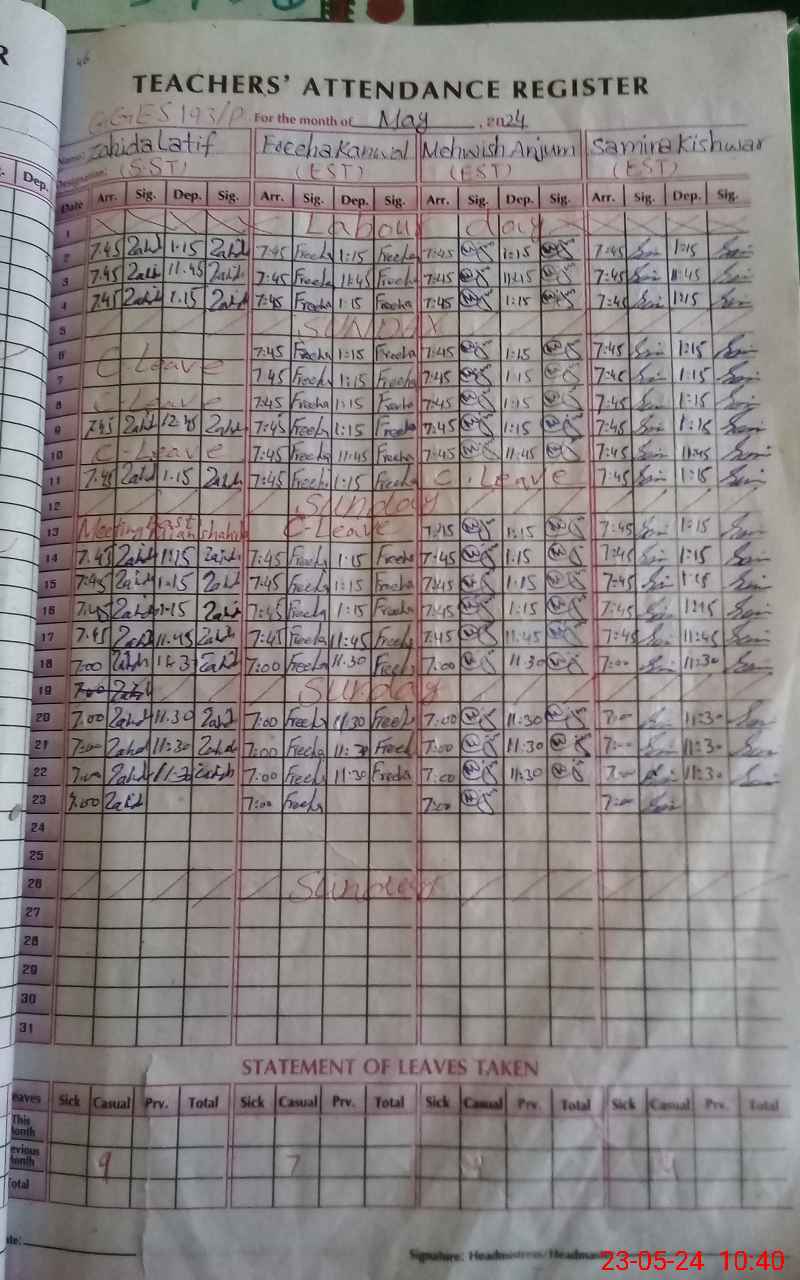 46
TEACHERS' ATTENDANCE REGISTER
GGES 193/P For the month of May, 2024
Name: Zahida Latif Freeha Kanwal Mehwish Anjum Samira Kishwar
Designation: (SST) (EST) (EST) (EST)
Dep. Date Arr. Sig. Dep. Sig. Arr. Sig. Dep. Sig. Arr. Sig. Dep. Sig. Arr. Sig. Dep. Sig.
1 Labour day
2 7:45 Zahid 1:15 Zahid 7:45 Freeha 1:15 Freeha 7:45 1:15 7:45 1:15
3 7:45 Zahid 11:45 Zahid 7:45 Freeha 11:45 Freeha 7:45 11:15 7:45 11:45
4 7:45 Zahid 1:15 Zahid 7:45 Freeha 1:15 Freeha 7:45 1:15 7:45 1:15
5 SUNDAY
6 7:45 Freeha 1:15 Freeha 7:45 1:15 7:45 1:15
7 C-Leave 7:45 Freeha 1:15 Freeha 7:45 1:15 7:45 1:15
8 C-Leave 7:45 Freeha 1:15 Freeha 7:45 1:15 7:45 1:15
9 7:45 Zahid 12:45 Zahid 7:45 Freeha 1:15 Freeha 7:45 1:15 7:45 1:15
10 C-Leave 7:45 Freeha 11:45 Freeha 7:45 11:45 7:45 11:45
11 7:45 Zahid 1:15 Zahid 7:45 Freeha 1:15 Freeha C. Leave 7:45 1:15
12 Sunday
13 Meeting C-Leave 7:45 1:15 7:45 1:15
14 7:45 Zahid 1:15 Zahid 7:45 Freeha 1:15 Freeha 7:45 1:15 7:45 1:15
15 7:45 Zahid 1:15 Zahid 7:45 Freeha 1:15 Freeha 7:45 1:15 7:45 1:15
16 7:45 Zahid 1:15 Zahid 7:45 Freeha 1:15 Freeha 7:45 1:15 7:45 1:15
17 7:45 Zahid 11:45 Zahid 7:45 Freeha 11:45 Freeha 7:45 11:45 7:45 11:45
18 7:00 Zahid 11:3 Zahid 7:00 Freeha 11:30 Freeha 7:00 11:30 7:00 11:30
19 7:00 Zahid Sunday
20 7:00 Zahid 11:30 Zahid 7:00 Freeha 11:30 Freeha 7:00 11:30 7:00 11:30
21 7:00 Zahid 11:30 Zahid 7:00 Freeha 11:30 Freeha 7:00 11:30 7:00 11:30
22 7:00 Zahid 11:30 Zahid 7:00 Freeha 11:30 Freeha 7:00 11:30 7:00 11:30
23 7:00 Zahid 7:00 Freeha 7:00 7:00
24
25
26 Sunday
27
28
29
30
31
STATEMENT OF LEAVES TAKEN
eaves Sick Casual Prv. Total Sick Casual Prv. Total Sick Casual Prv. Total Sick Casual Prv. Total
This
onth
evious
onth 9 7 4 4
otal
ate:
Signature: Headmistress/Headmas
23-05-24 10:40